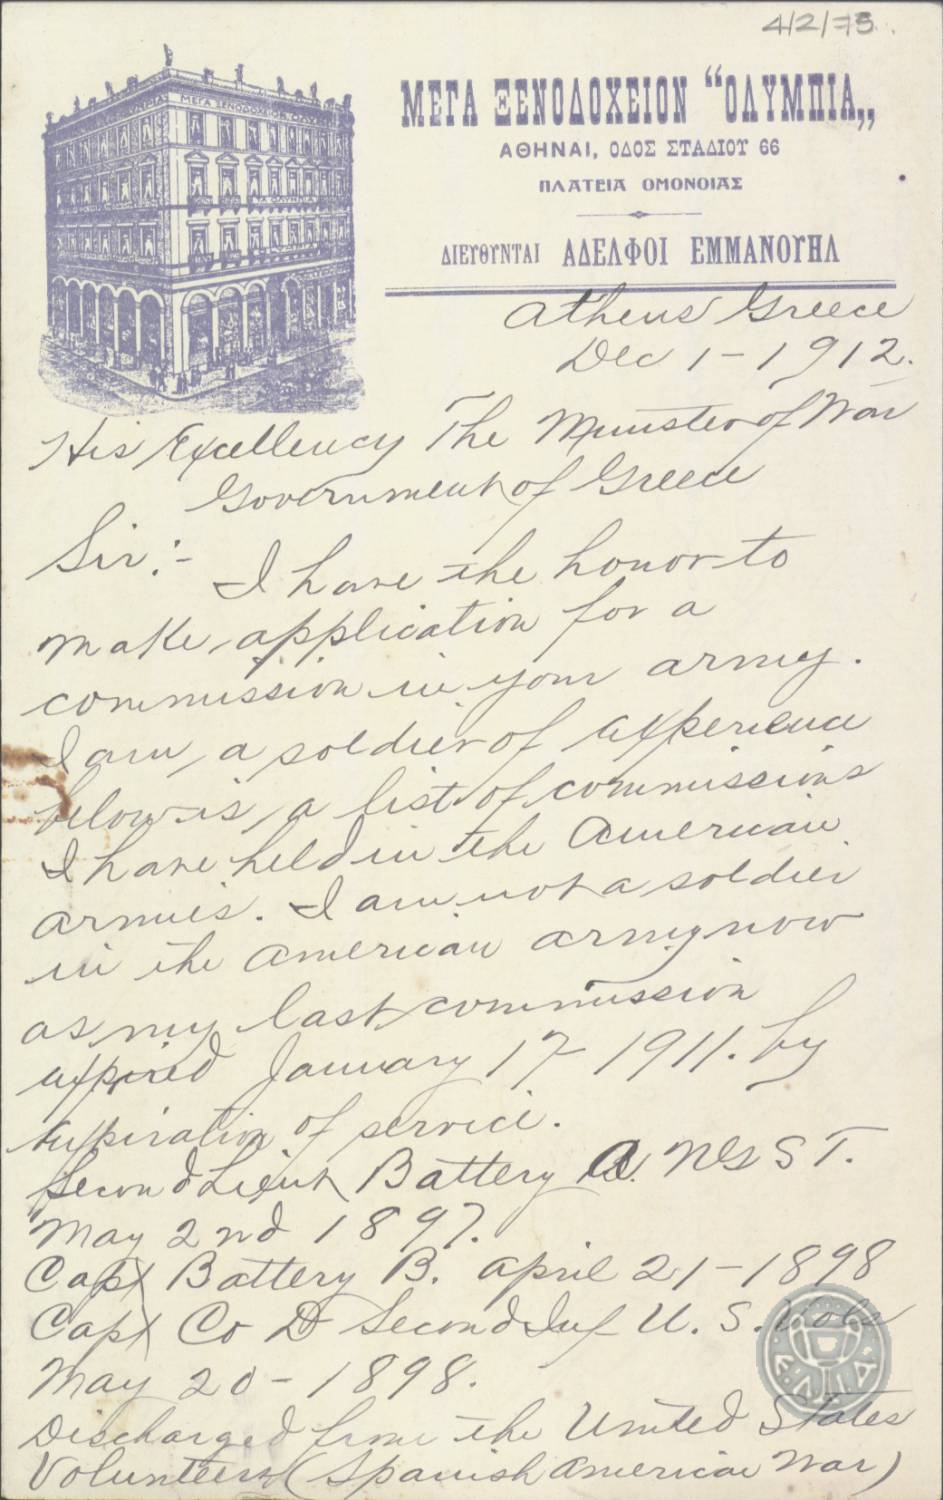 4/2/73.
ΜΕΓΑ ΞΕΝΟΔΟΧΕΙΟΝ ΟΛΥΜΠΙΑ
ΜΕΓΑ ΞΕΝΟΔΟΧΕΙΟΝ “ΟΛΥΜΠΙΑ„
ΑΘΗΝΑΙ, ΟΔΟΣ ΣΤΑΔΙΟΥ 66
ΠΛΑΤΕΙΑ ΟΜΟΝΟΙΑΣ
ΔΙΕΥΘΥΝΤΑΙ ΑΔΕΛΦΟΙ ΕΜΜΑΝΟΥΗΛ
Athens Greece
Dec 1 - 1912.
His Excellency The Minister of War
Government of Greece
Sir:- I have the honor to
make application for a
commission in your army.
I am a soldier of experience
below is a list of commissions
I have held in the American
armies. I am not a soldier
in the American army now
as my last commission
expired January 17 1911. by
expiration of service.
Second Lieut Battery A. S T.
May 2nd 1897.
Capt Battery B. April 21-1898
Capt Co D Second Inf U. S. Vols
May 20-1898.
Discharged from the United States
Volunteers (Spanish American War)
Ε.Λ.Ι.Α